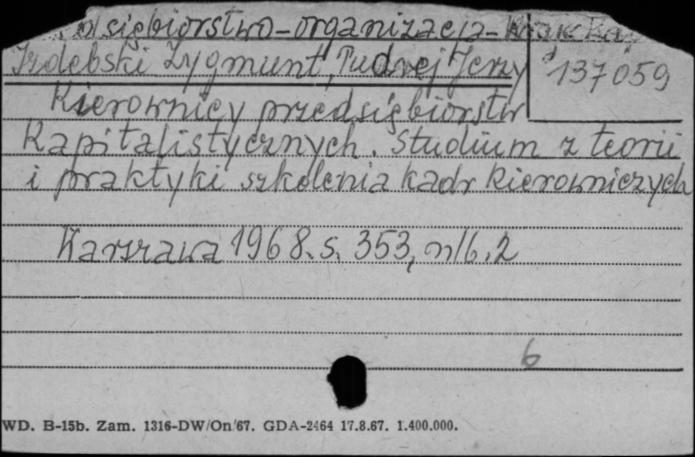 siębiorstwo-organizacja-
Izdebski Zygmunt, Tudrej Jerzy
137059
Kierownicy przedsiębiorstw
kapitalistycznych. Studium z teorii
i praktyki szkolenia kadr kierowniczych
Warszawa 1968. s. 353, nlb. 2
6
WD. B-15b. Zam. 1316-DW/On/67. GDA-2464 17.8.67. 1.400.000.